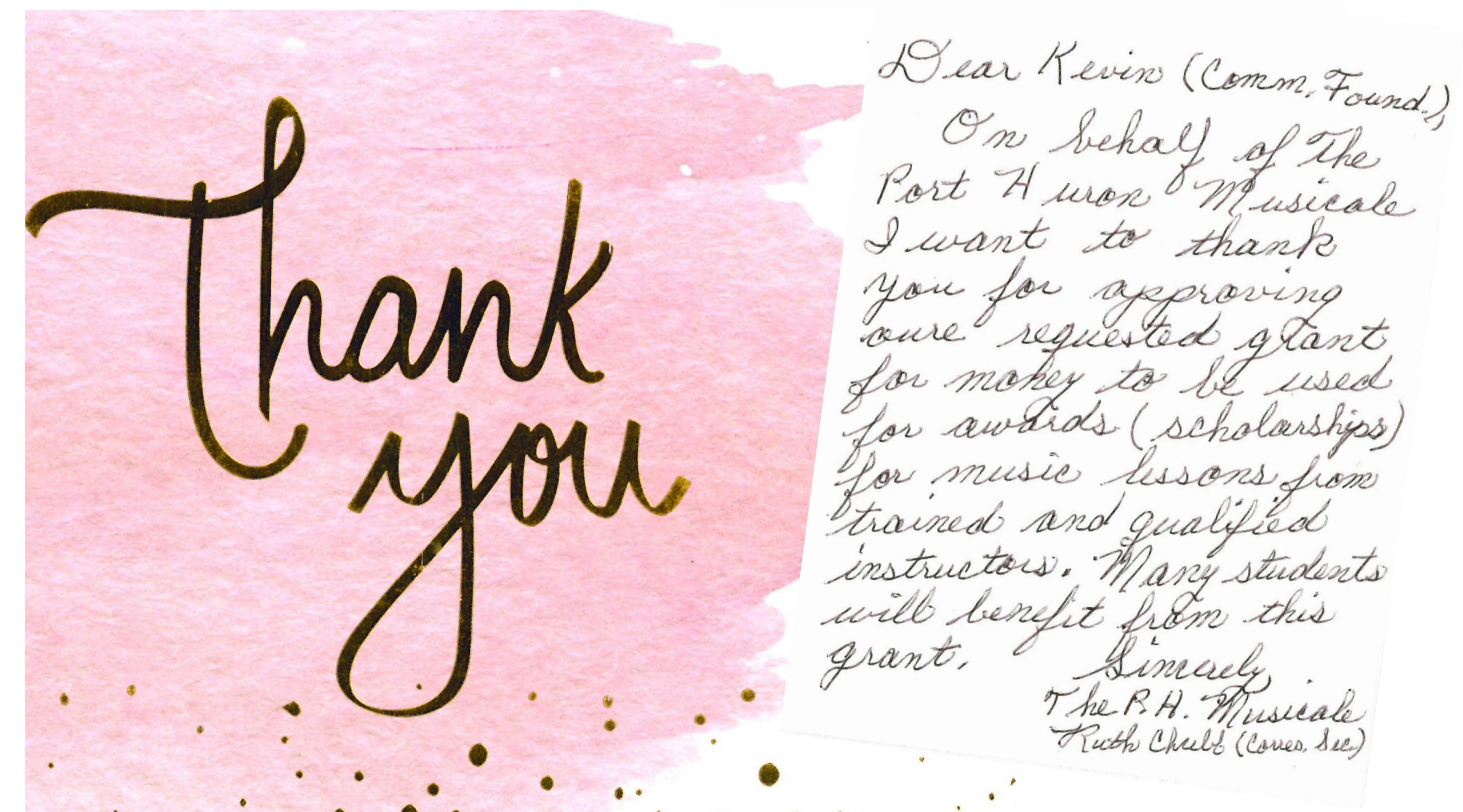 Thank
you
Dear Kevin (Comm. Found.),
On behalf of The
Port Huron Musicale
I want to thank
you for approving
oure requested grant
for money to be used
for awards (scholarships)
for music lessons from
trained and qualified
instructors. Many students
will benefit from this
grant.
Sincerely,
The P.H. Musicale
Ruth (Corres. Sec.)